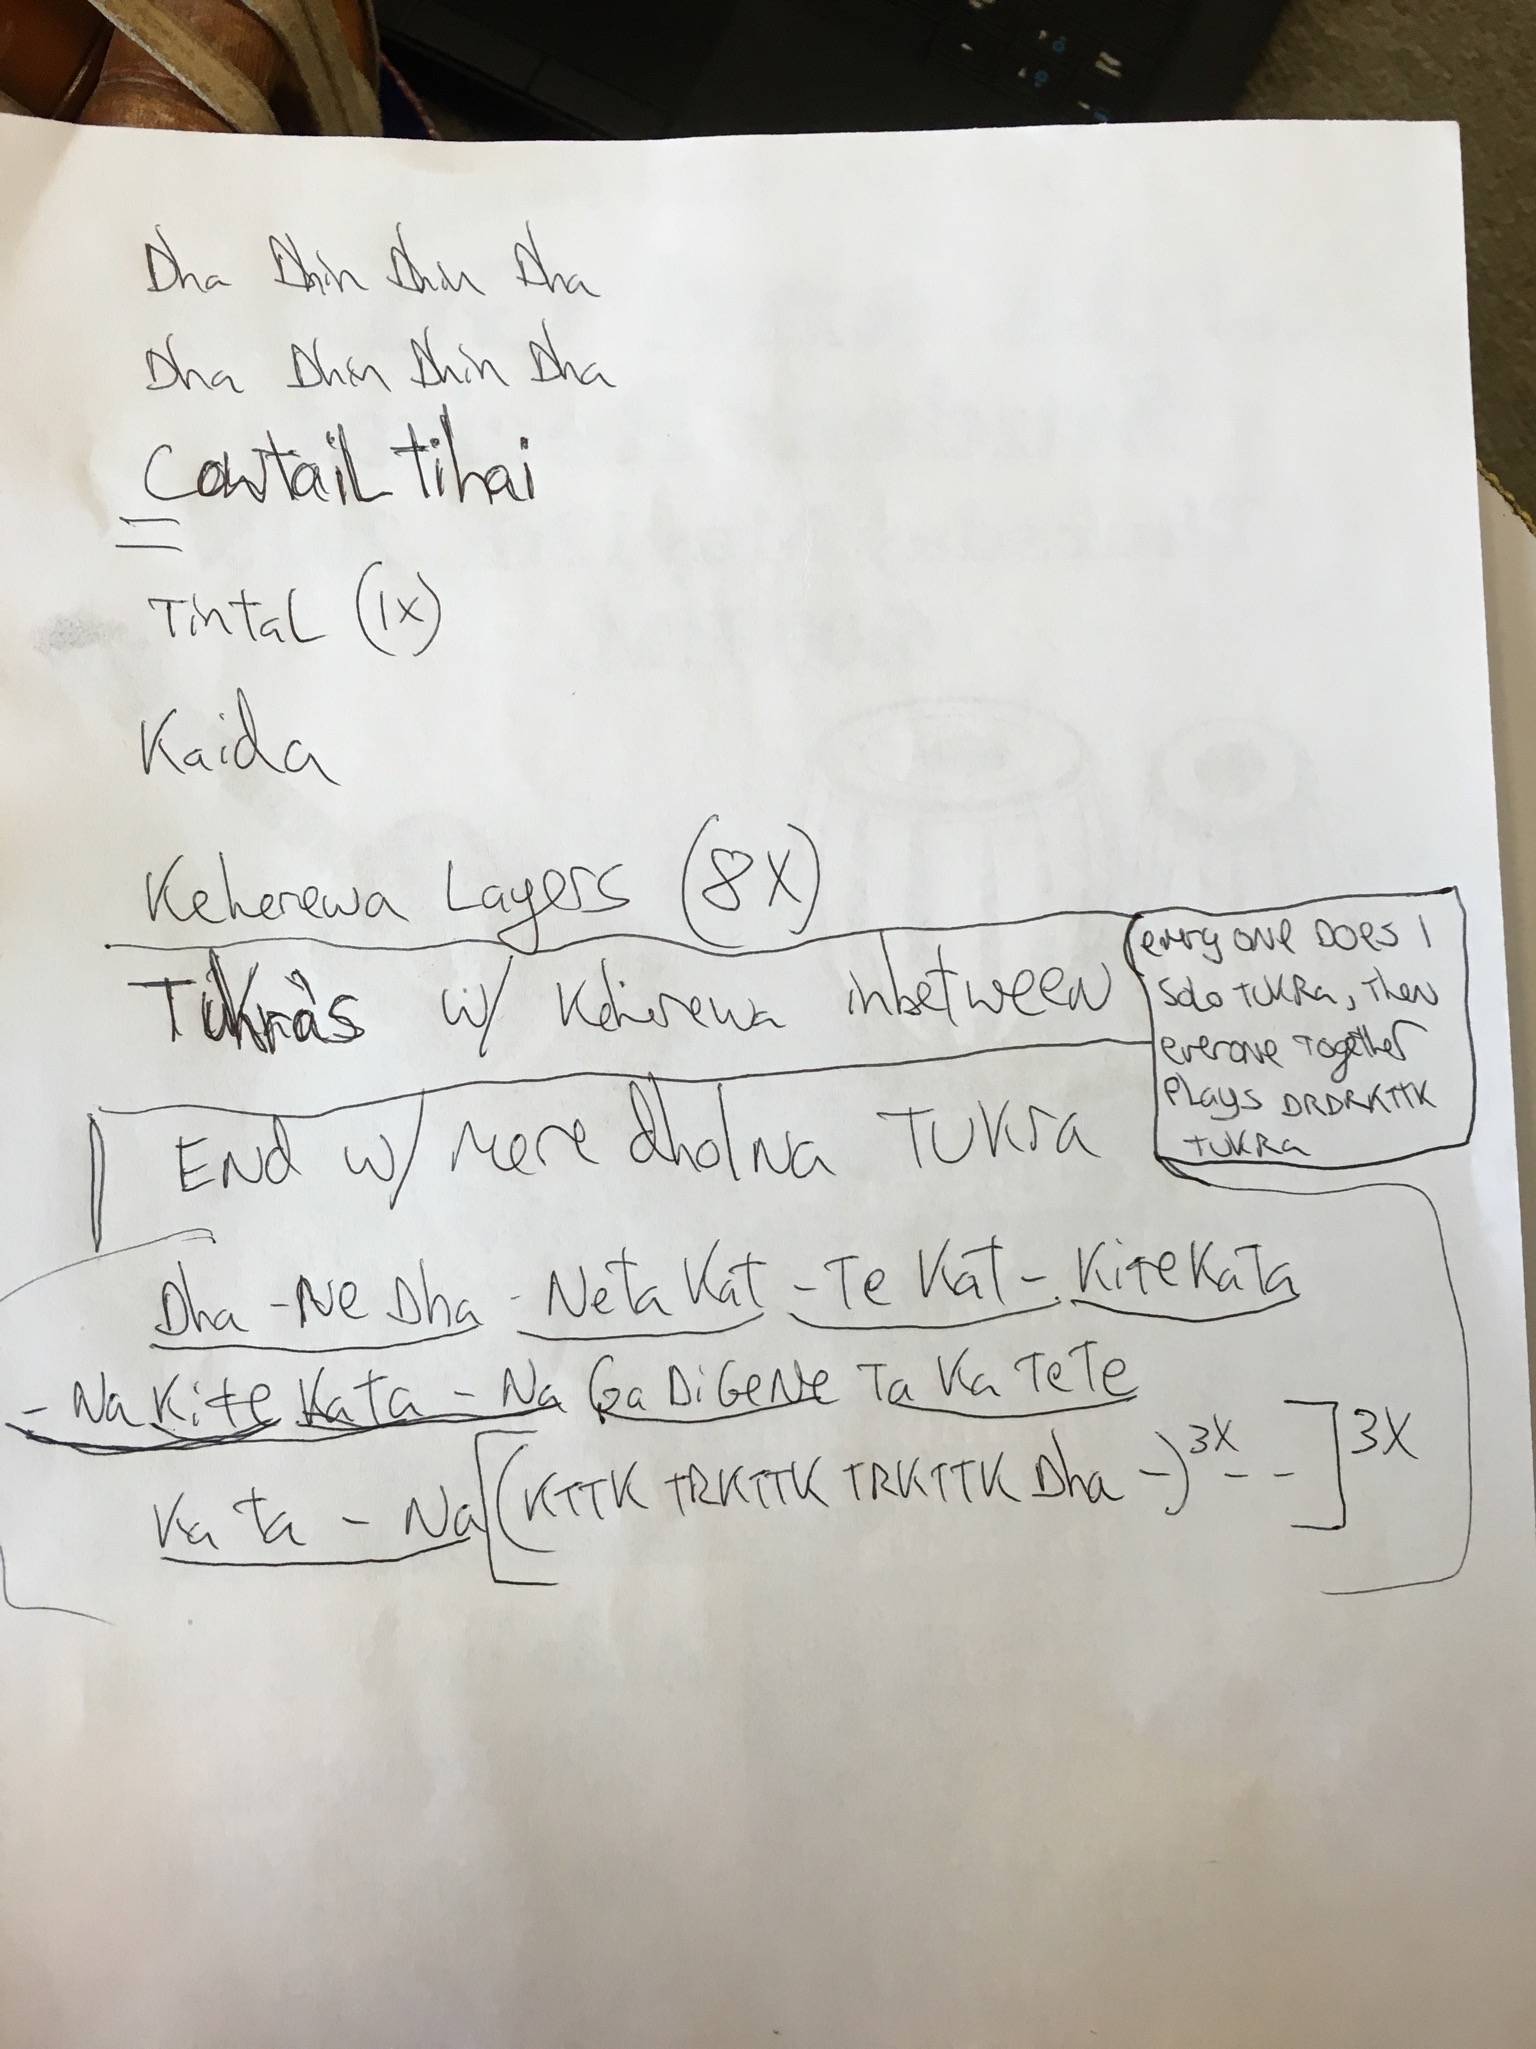 Dha Dhin Dhin Dha
Dha Dhin Dhin Dha
Cowtail tihai
=
Tintal (1x)
Kaida
Keherewa Layers (8X)
Tukras w/ Keherewa inbetween
everyone DOES 1
Solo TUKRa, Then
everone Together
Plays DRDRKTTK
TUKRa
END w/ mere dholna TUKra
Dha -Ne Dha - Neta Kat - Te Kat - KiteKata
- Na Kite Kata - Na Ga DiGeNe Ta Ka TeTe
Ka Ta - Na [(KTTK TRKTTK TRKTTK Dha -)3X - - ]3X